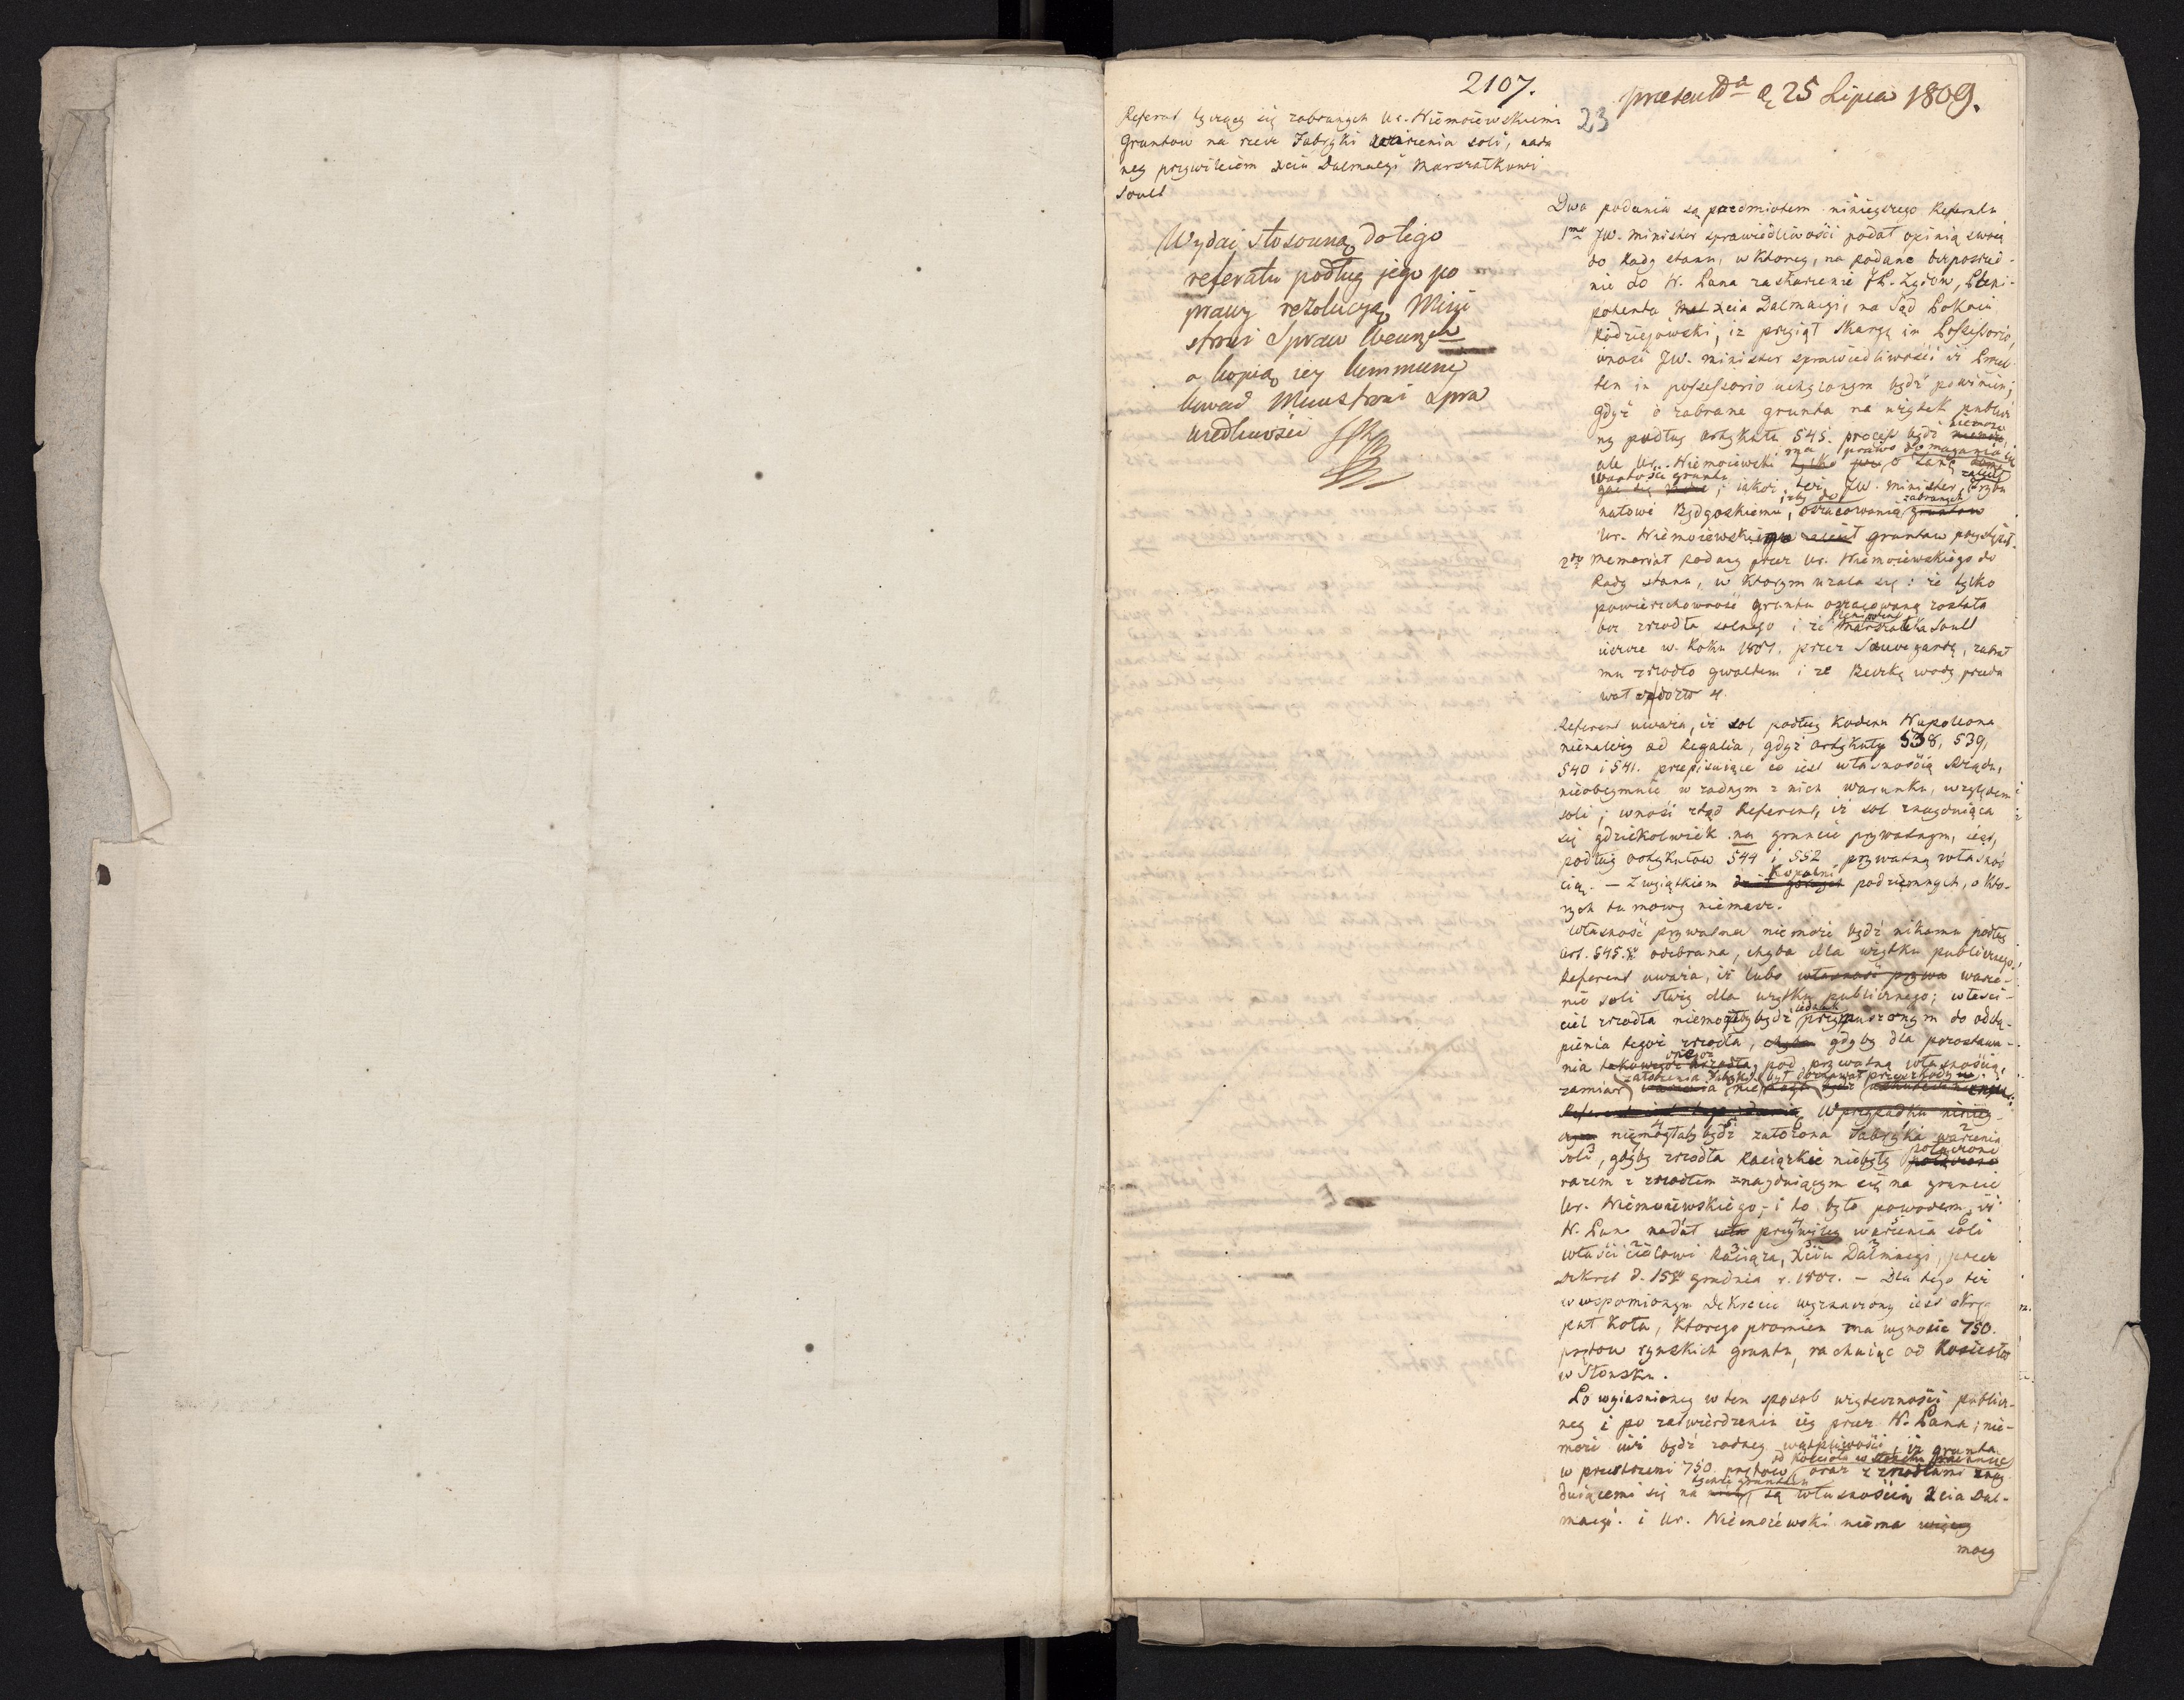 2107.
presentda d. 25 Lipca 1809.
23
Referat tyczący się zabranych Ur. Niemoiewskiemu
Gruntow na rzecz Fabryki warzenia soli, nada
ney przywileiem Xciu Dalmacyi Marszałkowi
Soult
Wydaj stosowną do tego
referatu podług jego po
prawy rezolucyą Mini
strowi Spraw Wewnęch
a kopią iey kommuni
kować Ministrowi Spra
wiedliwości
Dwa podania są przedmiotem ninieyszego Referatu
1mo JW. Minister sprawiedliwości podał opinią swoią
do Rady stanu, w ktorey, na podane bezposred-
nie do N. Pana zaskarzenie
potenta Xcia Dalmacyi, na Sąd Pokoiu
Radzieiowski, iz przyiął skargę in Possessorio,
wnosi JW. Minister sprawiedliwości iż Proces
ten in possessorio uchylonym bydź powinien;
gdyż o zabrane grunta na użytek public
ny podług Artykułu 545. proces bydź niemoże
ale Ur. Niemoiewski ma prawo domagania się
wartości gruntu; iakoż też JW. Minister zalecił Trybu
nałowi Bydgoskiemu, izby do oszacowania zabranych
Ur. Niemoiewskiemu gruntow przystąpił.
2do Memoriał podany przez Ur. Niemoiewskiego do
Rady stanu, w ktorym użala się: że tylko
powierzchowność gruntu oszacowaną została
bez zrzodła solnego i że Plenipotent Marszałka Soult
ieszcze w Roku 1807. przez Sauvegardę, zabrał
mu zrzodło gwałtem i że Beczkę wody przeda
wał po złł 4.
Referent uważa, iż sol podług Kodexu Napoleona
nienależy ad Regalia, gdyż artykuły 538, 539,
540 i 541. przepisuiące co iest własnością Rządu,
nieobeymuie w żadnym z nich warunku, względem
soli; wnosi ztąd Referent, iż sol znayduiąca
się gdziekolwiek na gruncie prywatnym, iest,
podług artykułow 544 i 552 prywatną własnoś
cią. — Z wyiątkiem Kopalni podziemnych, o kto-
rych tu mowy niemasz.
Własność prywatna nie może bydź nikomu podług
Art. 545. odebrana, chyba dla użytku publicznego.
Referent uważa, iż lubo własność prywa warze-
nie soli służy dla użytku publicznego; właści-
ciel zrzodła niemogłby bydź iednak przymuszonym do odstą-
pienia tegoż zrzodła, chyba gdyby dla pozostawie-
nia onegoż pod prywatną własnością,
zamiar założenia Fabryki
W przypadku niniey-
szym niemogłaby bydź założona Fabryka warzenia
soli, gdyby zrzodła Raciązkie niebyły połączone
razem z zrzodłem znayduiącym się na gruncie
Ur. Niemoiewskiego; i to było powodem, iż
N. Pan nadał przywiley warzenia soli
właścicielowi Raciąża, Xciu Dalmacyi, przez
Dekret d. 15go grudnia r. 1807. — Dla tego też
w wspomionym Dekrecie wyznaczony iest okrę
Koła, ktorego promień ma wynosić 750.
prętow ryńskich gruntu, rachuiąc od Kościoła
w Słonsku.
Po wyiaśnioney w ten sposob użyteczności publicz-
ney i po zatwierdzeniu iey przez N. Pana; nie-
może iuż bydź żadney wątpliwości, iż grunta
w przestrzeni 750 prętow od Kościoła w Słonsku rachuiąc oraz z zrzodłami znay
duiącemi się na tymże gruncie są własnością Xcia Dal-
macyi. i Ur. Niemoiewski niema więcey
mocy